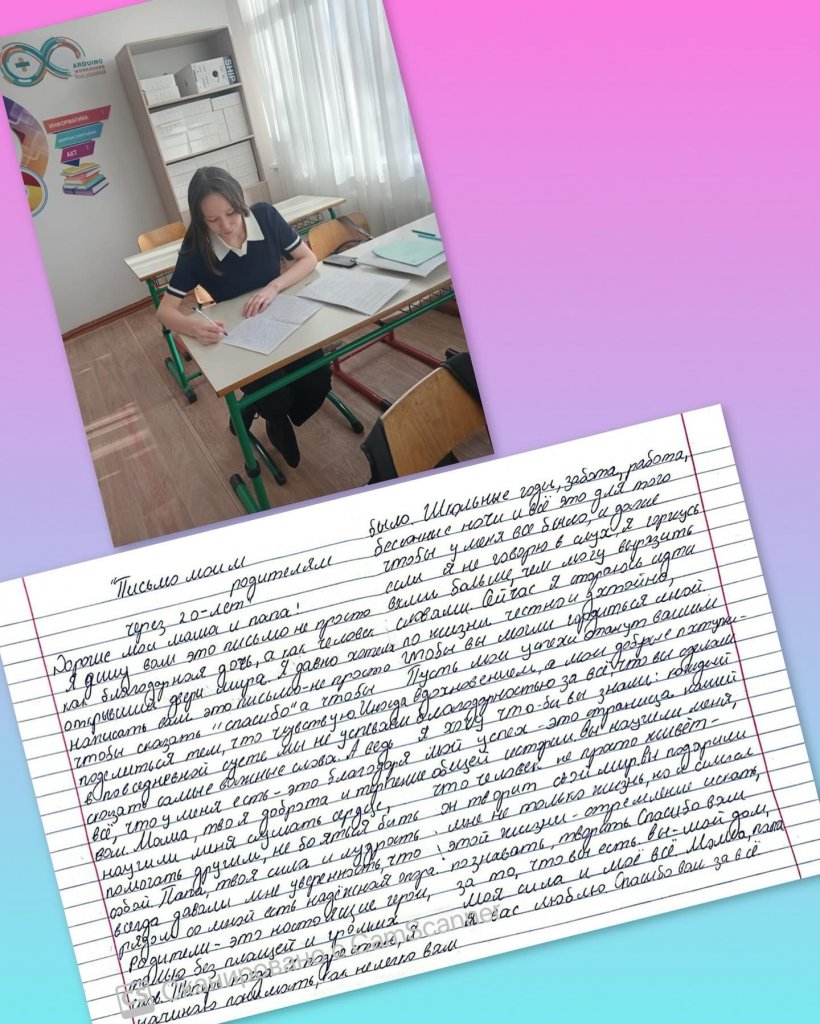 ARDUINO
WORKSHOPS
ИНФОРМАТИКА
АКТ
SHIP
"Письмо моим
родителям
через 20-лет"
Дорогие мои мама и папа!
Я пишу вам это письмо не просто
как благодарная дочь, а как человек
открывший двери мира. Я давно хотела
написать вам это письмо-не просто
чтобы сказать ,,спасибо" а чтобы
поделиться тем, что чувствую. Иногда
в повседневной суете мы не успеваем
сказать самые важные слова. А ведь
всё, что у меня есть-это благодаря
вам. Мама, твоя доброта и терпение
научили меня слушать сердце,
помогать другим, не бояться быть
собой. Папа, твоя сила и мудрость
всегда давали мне уверенность, что
рядом со мной есть надёжная опора.
родители-это настоящие герои,
только без плащей и громких
слов. Теперь когда я, я
начинаю понимать, как нелегко вам
было. Школьные годы, забота, работа,
бессонные ночи и всё это для того
чтобы у меня всё было, и даже
если я не говорю в слух-я горжусь
вами больше, чем могу выразить
словами. Сейчас я стараюсь идти
по жизни честно и достойно,
чтобы вы могли гордиться мной
Пусть мои успехи станут вашим
вдохновением, а мои добрые поступки-
благодарностью за всё, что вы сделали
Я хочу что-бы вы знали: каждый
мой успех-это страница нашей
общей истории. Вы научили меня,
что человек не просто живёт-
он творит свой мир. Вы подарили
мне не только жизнь, но и смысл
этой жизни-стремление искать,
познавать, творить Спасибо вам
за то, что вы есть вы-мой дом,
моя сила и моё всё Мама, папа
Я вас люблю Спасибо вам за всё
CS Сканировано с CamScanner